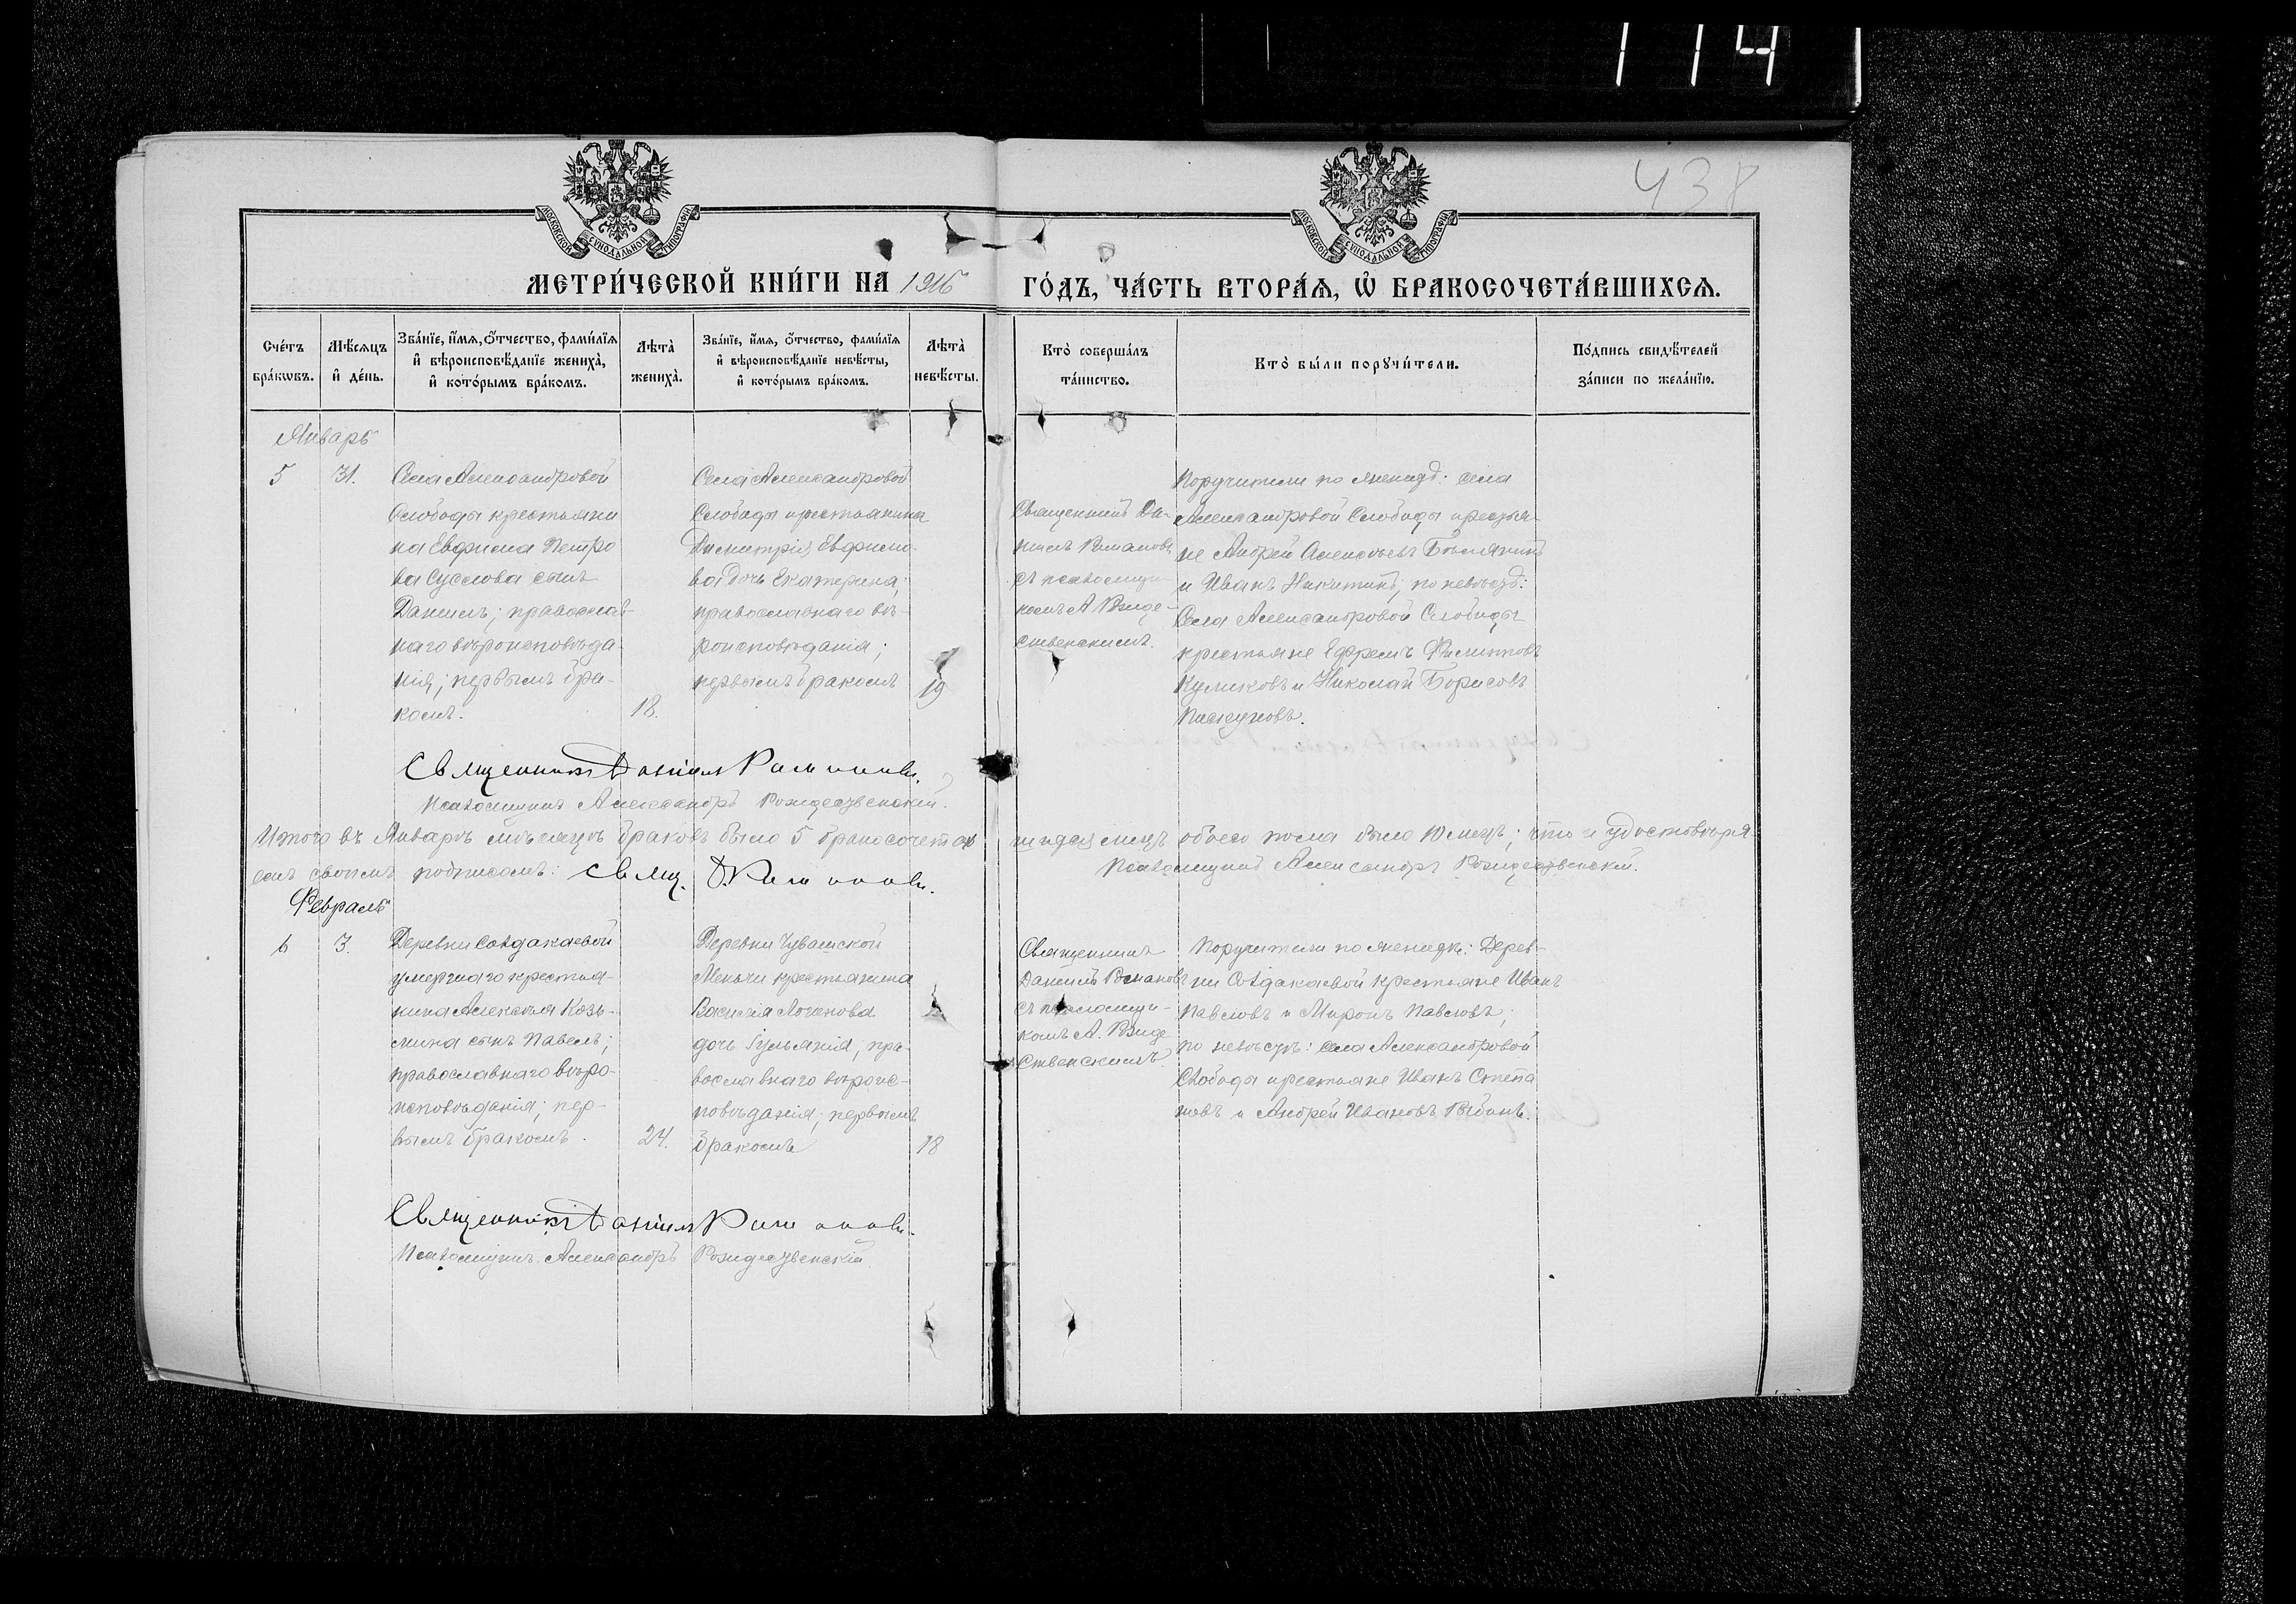 114
438
МОСКОВСКОЙ СѴНОДАЛЬНОЙ ТИПОГРАФІИ
МОСКОВСКОЙ СѴНОДАЛЬНОЙ ТИПОГРАФІИ
МЕТРИ́ЧЕСКОЙ КНИ́ГИ НА 1916 ГО́ДЪ, ЧА́СТЬ ВТОРА́Я, Ѡ҆ БРАКОСОЧЕТА́ВШИХСЯ.
Сче́тъ бра́кωвъ.
Мѣ́сяцъ и҆ де́нь.
Зва́нїе, и҆́мя, ѻ҆́тчество, фами́лїя и҆ вѣроисповѣ́данїе жениха̀, и҆ кото́рымъ бра́комъ.
Лѣта̀ жениха̀.
Зва́нїе, и҆́мя, ѻ҆́тчество, фами́лїя и҆ вѣроисповѣ́данїе невѣ́сты, и҆ кото́рымъ бра́комъ.
Лѣта̀ невѣ́сты.
Кто̀ соверша́лъ та́инство.
Кто̀ бы́ли порꙋчи́тели.
По́дпись свидѣ́телей за́писи по жела́нїю.
Январь
5
31.
Села Александровой
Слободы крестьяни
на Евфима Петро
ва Суслова сынъ
Даниилъ; православ-
наго вѣроисповѣда
нія; первымъ бра-
комъ.
18.
Села Александровой
Слободы крестьянина
Димитрія Евфимо
ва дочь Екатерина;
православнаго вѣ-
роисповѣданія;
первымъ бракомъ
19
Священникъ Да-
ніилъ Романовъ
съ псаломщи-
комъ А Рожде-
ственскимъ.
Поручители по женихѣ: села
Александровой Слободы крестья-
не Андрей Алексѣевъ
и Иванъ Никитинъ; по невѣстѣ:
Села Александровой Слободы
крестьяне Ефремъ Филипповъ
Куликовъ и Николай Борисовъ
Священникъ Даніилъ Романовъ.
Псаломщикъ Александръ Рождественскій.
Итого въ Январѣ мѣсяцѣ браковъ было 5 бракосочетав
шихся лицъ обоего пола было 10 лицъ; что и удостовѣря
емъ своимъ подписомъ: Свящ. Д. Романовъ.
Псаломщикъ Александръ Рождественскій.
Февраль
6
3.
Деревни Солдакаевой
умершаго крестья-
нина Алексѣя Козь-
мина сынъ Павелъ;
православнаго вѣро-
исповѣданія; пер-
вымъ бракомъ.
24.
Деревни Чувашской
Менчи крестьянина
Василія Логинова
дочь Іульянія, пра-
вославнаго вѣроис-
повѣданія; первымъ
бракомъ
18
Священникъ
Даніилъ Романовъ
съ псаломщи-
комъ А. Рожде
ственскимъ
Поручители по женихѣ: Дерев-
ни Солдакаевой крестьяне Иванъ
Павловъ и Миронъ Павловъ;
по невѣстѣ: села Александровой
Слободы крестьяне Иванъ Степа
новъ и Андрей Ивановъ
Священникъ Даніилъ Романовъ.
Псаломщикъ Александръ Рождественскій